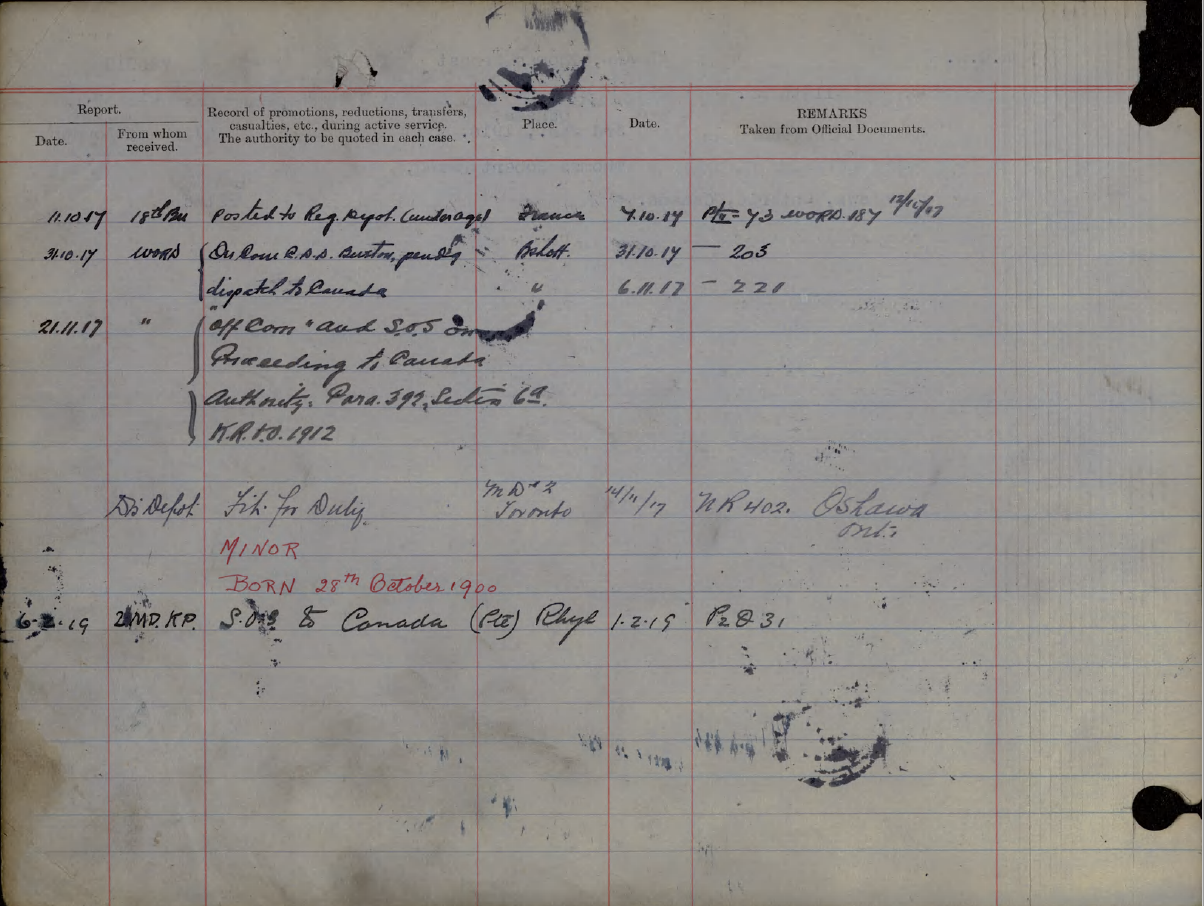 Report.
Record of promotions, reductions, transfers, casualties, etc., during active service. The authority to be quoted in each case.
Place.
Date.
REMARKS
Taken from Official Documents.
Date.
From whom received.
11.10.17 18th Bn Posted to Reg. Depot. (underage) France 7.10.17 Pt II = 73 WORD. 187 12/10/17
31.10.17 WORD On Com C.D.D. Buxton, pend'g Bshott. 31.10.17 — 203
dispatch to Canada " 6.11.17 — 220
21.11.17 " "Off Com" and S.O.S on
Proceeding to Canada
Authority. Para. 392, Section 6a.
K.R.&O. 1912
Dis Depot Fit for Duty M D 2 Toronto 14/11/17 NR 402. Oshawa Ont.
MINOR
BORN 28th October 1900
6-2-19 2MD. KP. S.O.S to Canada (Pte) Rhyl 1-2-19 P2O 31